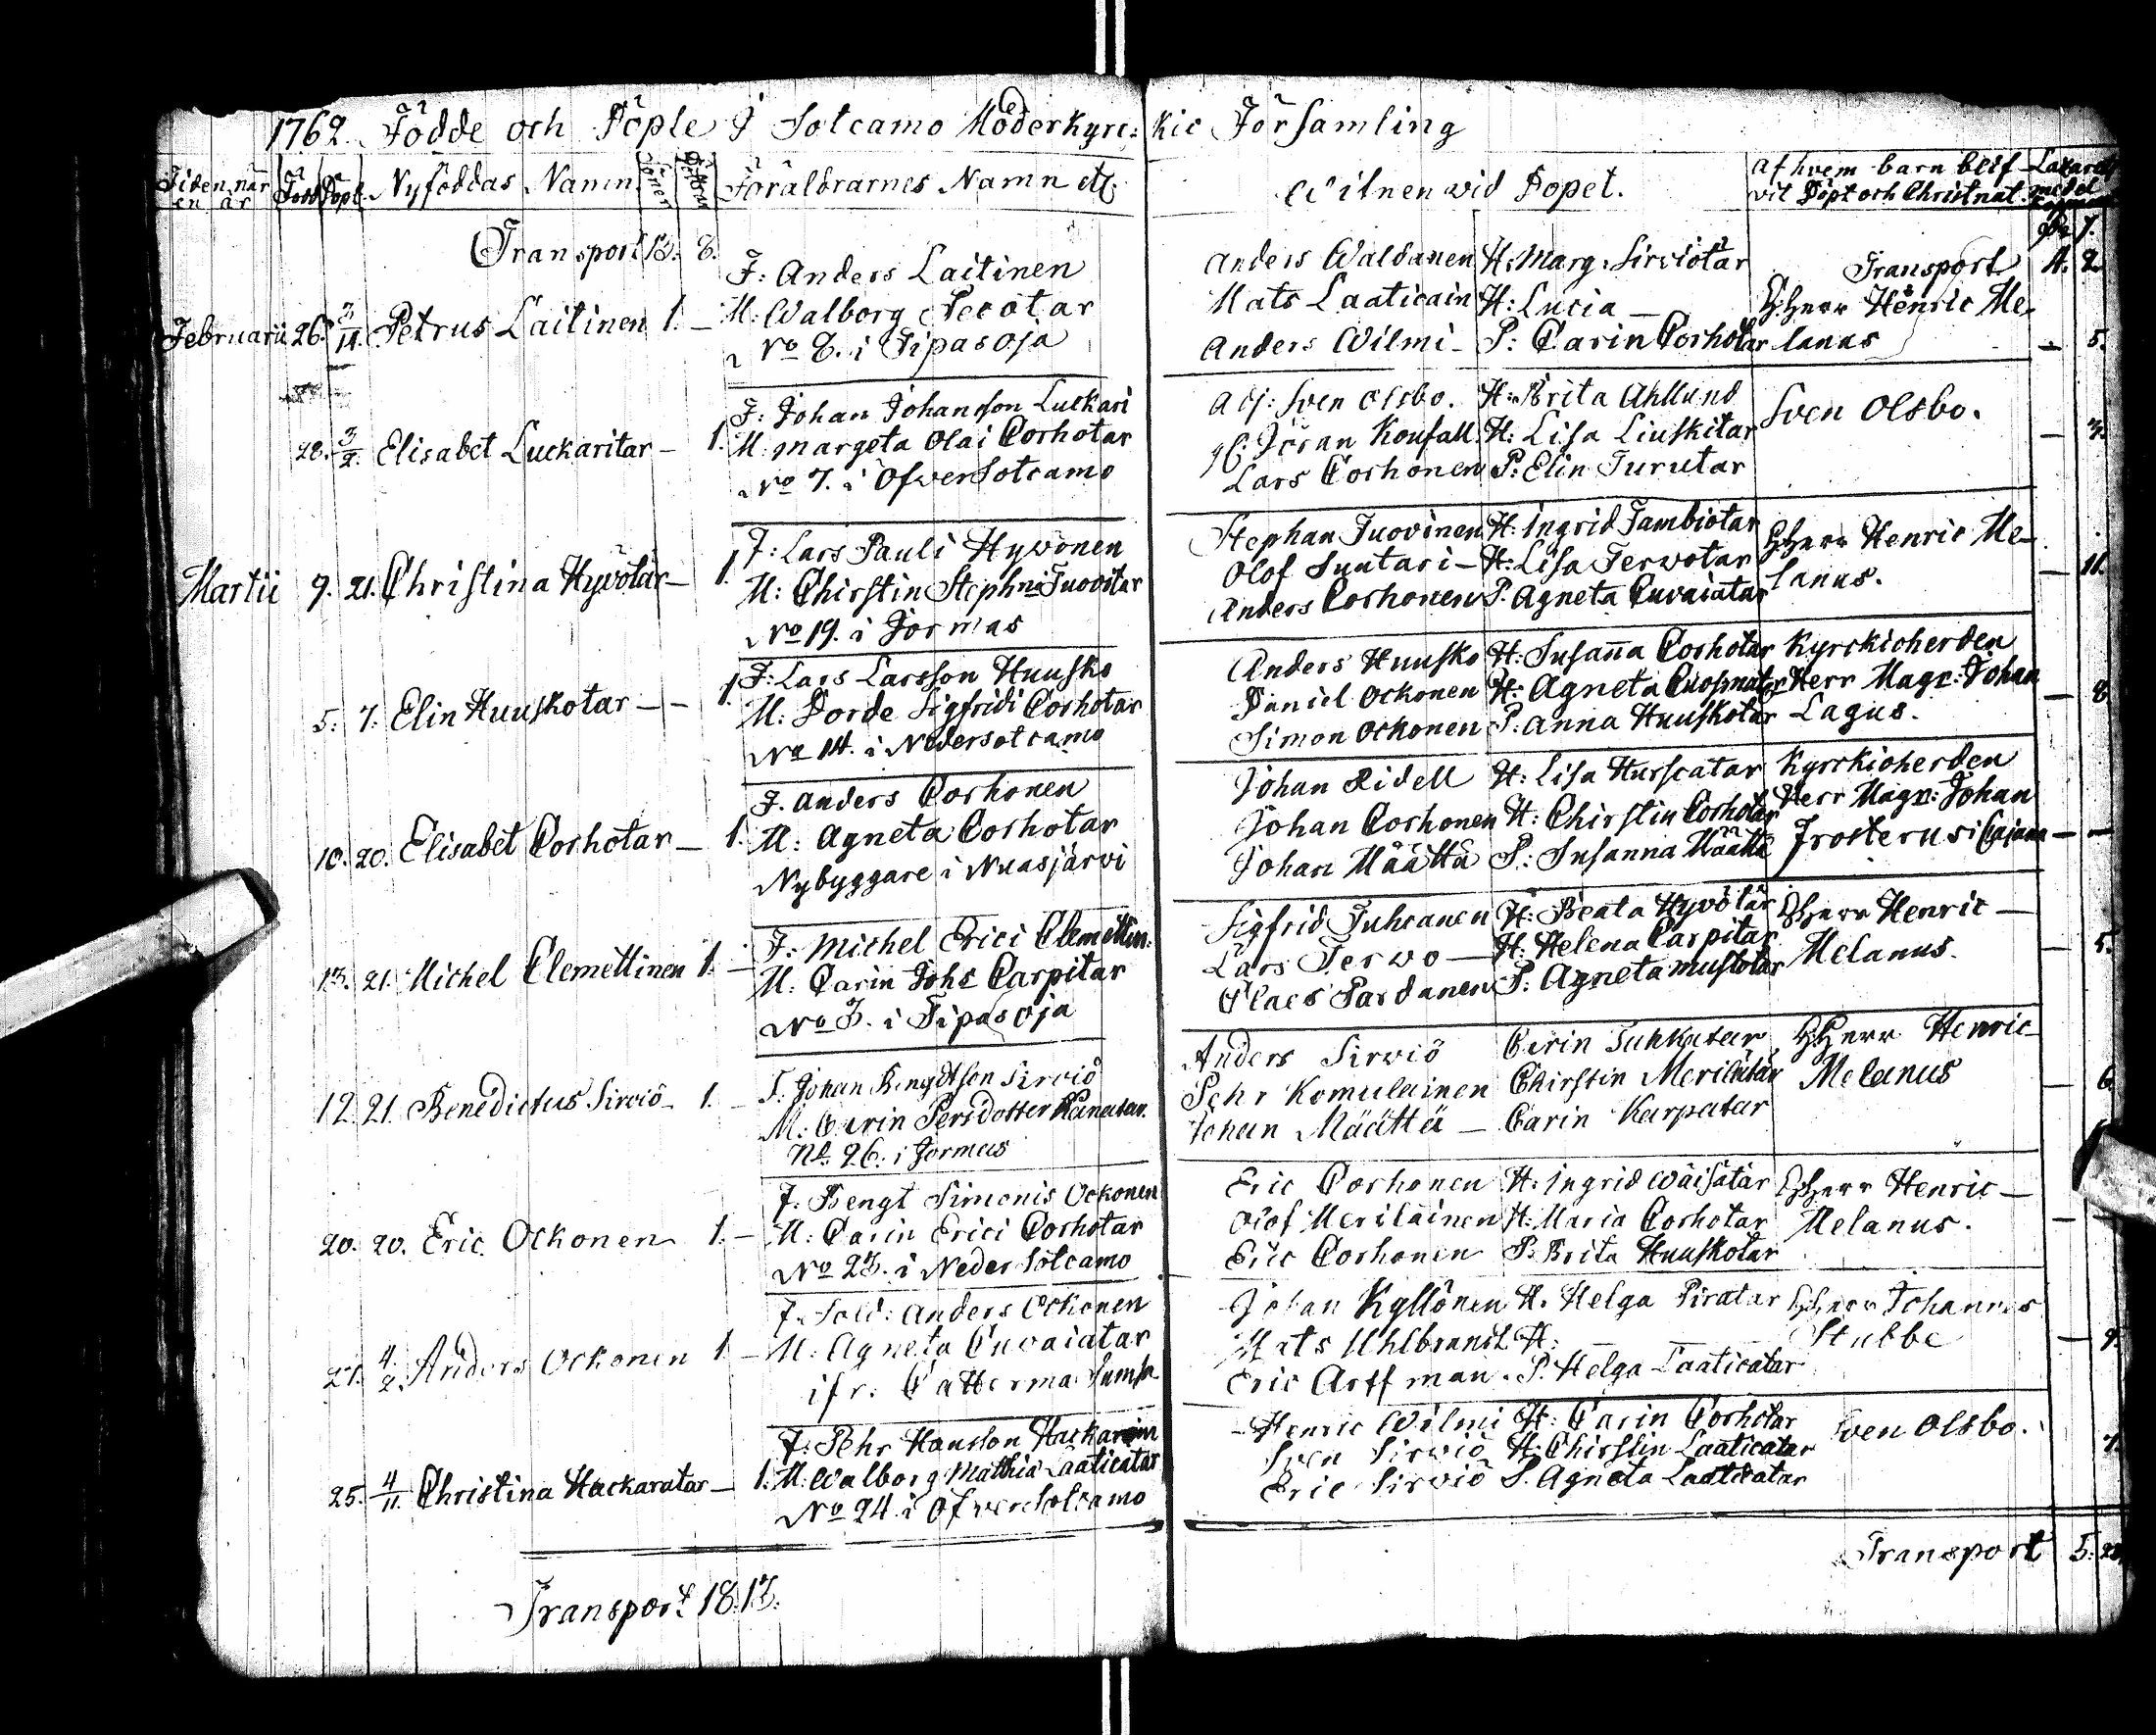 1762. Födde och Döpte I Sotcamo Moderkyrc= kio Församling
Tiden när Född Döpt. Nyföddas Namn Söner Döttrar Föräldrarnes Namn etc. Witnen wid Dopet. af hvem barn blif- Lazarett
en är wit Döpt och Christnat. medel
Transport 13. 8. Transport 4. 2.
F: Anders Laitinen Anders Waldanen H: Marg. Sirviötär
Februarii 26. 3/14. Petrus Laitinen 1. — M: Walborg Tecotar Mats Laaticain H: Lucia — Herr Henric Me-
No 8. i Tipasoja Anders Wilmi - P: Carin Corhotar lanus — 5.
F: Johan Johansson Luckari Adj: Sven Olsbo. H: Brita Ahllund Sven Olsbo.
28. 3/2. Elisabet Luckaritar - 1. M: Margeta Olai Corhotar Jöran Konfall. H: Lisa Liuskitar — 3.
No 7. i Öfversotcamo Lars Corhonen P: Elin Turutar
F: Lars Pauli Hyvönen Stephan Tuovinen H: Ingrid Tambiotar Herr Henric Me-
Martii 9. 21. Christina Hyvötär — 1. M: Chirstin Stephni Tuovitar Olof Suutari - H: Lisa Tervotar lanus. — 11.
No 19. i Jormas Anders Corhonen P. Agneta Cuvaiatar
F: Lars Larsson Huusko Anders Huusko H: Susanna Corhotar Kyrckioherden
5. 7. Elin Huuskotar — - 1. M: Dorde Sigfridi Corhotar Daniel Ockonen H: Agneta Herr Magr: Johan — 8
No 14. i Nedersotcamo Simon Ockonen P: Anna Huuskotar Lagus.
F. Anders Corhonen Johan Ridell H: Lisa Hurscatar Kyrckioherden
10. 20. Elisabet Corhotar — 1. M: Agneta Corhotar Johan Corhonen H: Chirstin Corhotar Herr Magr: Johan
Nybyggare i Nuasjärvi Johan Määttä P: Susanna Määttä Frosterus i Cajana — —
F: Michel Erici Clemettin: Sigfrid Juhcanen H: Beata Hyvötär Herr Henric —
13. 21. Michel Clemettinen 1. — M: Carin Johs Carpitar Lars Tervo — H: Helena Carpitar Melanus. — 5.
No 3. i Tipasoja Claes Pardanen P: Agneta Mustotar
F. Johan Bengdtson Sirviö Anders Sirwiö Carin Tuhkatar Herr Henric
12. 21. Benedictus Sirviö - 1. - M: Carin Persdotter Pehr Komulainen Chirstin Merilätär Melanus — 6.
No. 26. i Jormas Johan Määttä — Carin Karpatar
F: Bengt Simonis Ockonen Eric Corhonen H: Ingrid Wäisätär Herr Henric —
20. 20. Eric Ockonen 1. — M: Carin Erici Corhotar Olof Meriläinen H: Maria Corhotar Melanus. —
No 23. i Neder Sotcamo Eric Corhonen P: Brita Huuskotar
F. Sold: Anders Ockonen Johan Kyllönen H. Helga Piratar Herr Johannes
27. 4/2. Anders Ockonen 1. — M: Agneta Cuvaiatar Mats Uhlbrandt H: — — Stubbe — 9.
ifr. Catterma Eric Arffman. P. Helga Laaticatar
F: Pehr Hansson Henric Wilmi H: Carin Corhotar Sven Olsbo.
25. 4/11. Christina Hackaratar — 1. M: Walborg Mathiæ Laaticatar Sven Sirviö H: Chirstin Laaticatar 7.
No 24. i Öfversotcamo Eric Sirviö P. Agneta Laaticatar
Transport 5.
Transport. 18. 13.